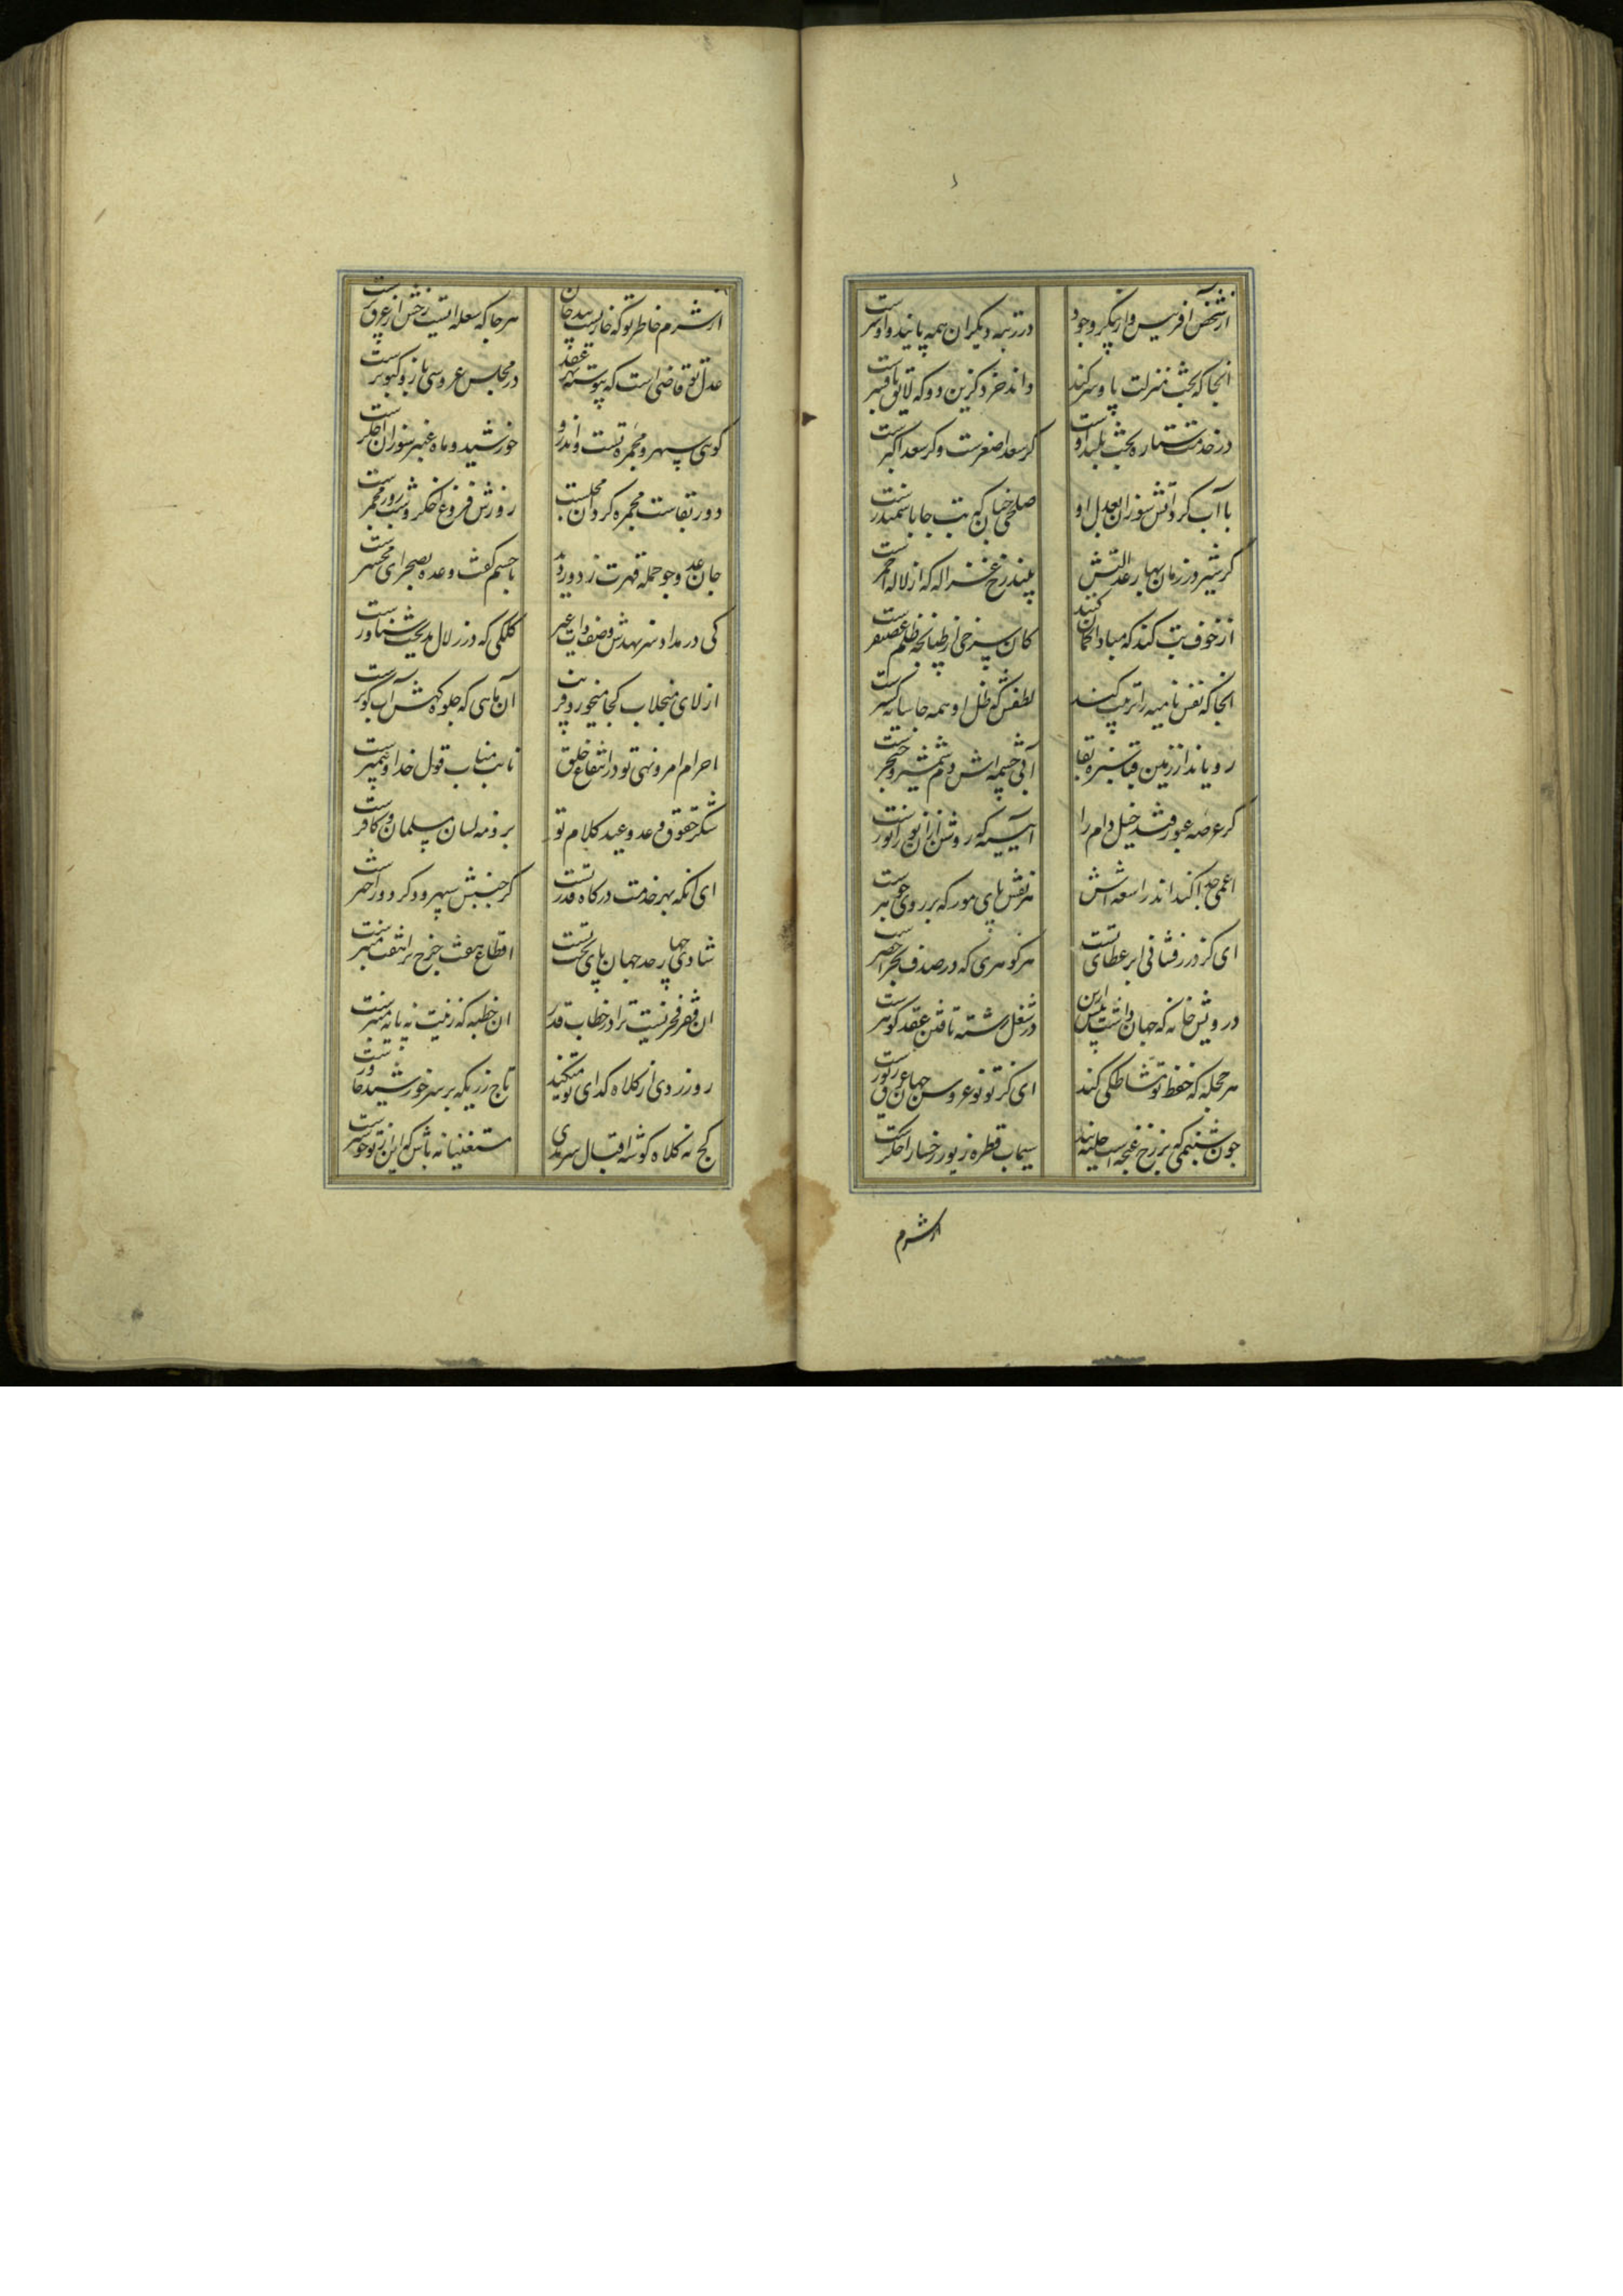 از شخص آفرینش و از پیکر وجود
در رتبه دیگران همه پایند و او سرست
انجا که بحث منزلت پا و سر کند
داند خرد کزین دو که لایق بافسرست
در خدمت ستاره بخت بلند اوست
کر سعد اصغرست و کر سعد اکبرست
با آب کرد آتش سوزان بعدل او
صلحی چنان که بت جا با سمندرست
کر شیر در زمان بهار عدالتش
بیند رخ غزاله که از لاله احمرست
از خوف تب کند که مبادا کمان کنند
کان سرخی از طپانچه ظلم غضنفرست
انجا که نفس نامیه را تربیت کند
لطفش که ظل او همه جا سایه کسترست
رویاند از زمین قبا سبزه بقا
آبی که چشمه اش دم شمشیر و خنجرست
کر عرصه عبور فتد خیل وام را
آیینه که روشن از آن نور انورست
اعمی جدا کند اندر اشعه اش
هر نقش پای مور که بر روی جوهرست
ای کز درر فشانی ابر عطای تست
هر کوهری که در صدف بحر اخضرست
درویش خانه که جهان داشت پیش ازین
در شغل رشته تافتن عقد کوهرست
هر حجله که حفظ تو مشاطکی کند
ای کز تو نو عروس جهان غرق زیورست
چون شبنمی که بر رخ غنچه است
سیماب قطره زیور رخسار اخکرست
از شرم
از شرم خاطر تو که خازیست بیدخان
هر جا که شعله ایست رخش از عرق ترست
عدل تو قاضی است که پیوسته بهر عقد
در مجلس عروسی باز و کبوترست
کوهی سپهر و مجمره تست و اندرو
خورشید و ماه عنبر سوزان و اخکرست
دور بقاست مجمره کردان مجلست
روزش فروغ اخکر و شب دود مجمرست
جان عدو چو حمله قهرت ز دور دید
با جسم کفت وعده بصحرای محشرست
کی در مداد سر نهدش وصف داب غیر
کلکی که در زلال مدیحت شناورست
از لای منجلاب کجا میخورد فریب
آن ماهی که جلوه کهش آب کوثرست
احرام امر و نهی تو در انتفاع خلق
نایب مناب قول خدا و پیمبرست
شکر حقوق وعد و وعید کلام تو
بر ذمه لسان مسلمان و کافرست
ای آنکه بهر خدمت درکاه قدر تست
کر جنبش سپهر و کر دور اخترست
شادی چهار حد جهان پای تخت تست
اقطاع هفت چرخ برانتفت مقررست
ان فقر فخر نیست ترا در خطاب قدر
ان خطبه که زینت نه پایه منبرست
روزردی از کلاه کدای تو میکند
تاج زریکه بر سر خورشید خاورست
کج نه کلاه کوشه اقبال سرمدی
مستغنیانه باش که این از تو خوشترست